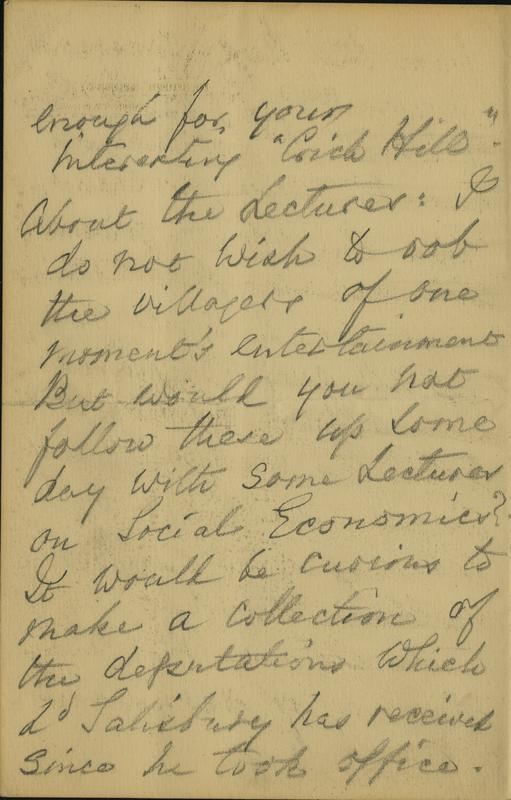 enough for your
interesting "Crich Hill".
About the Lectures: I
do not wish to rob
the villagers of one
moment's entertainment
But would you not
follow these up some
day with some Lectures
on Social Economics?
It would be curious to
make a collection of
the deputations which
Ld Salisbury has received
since he took office.